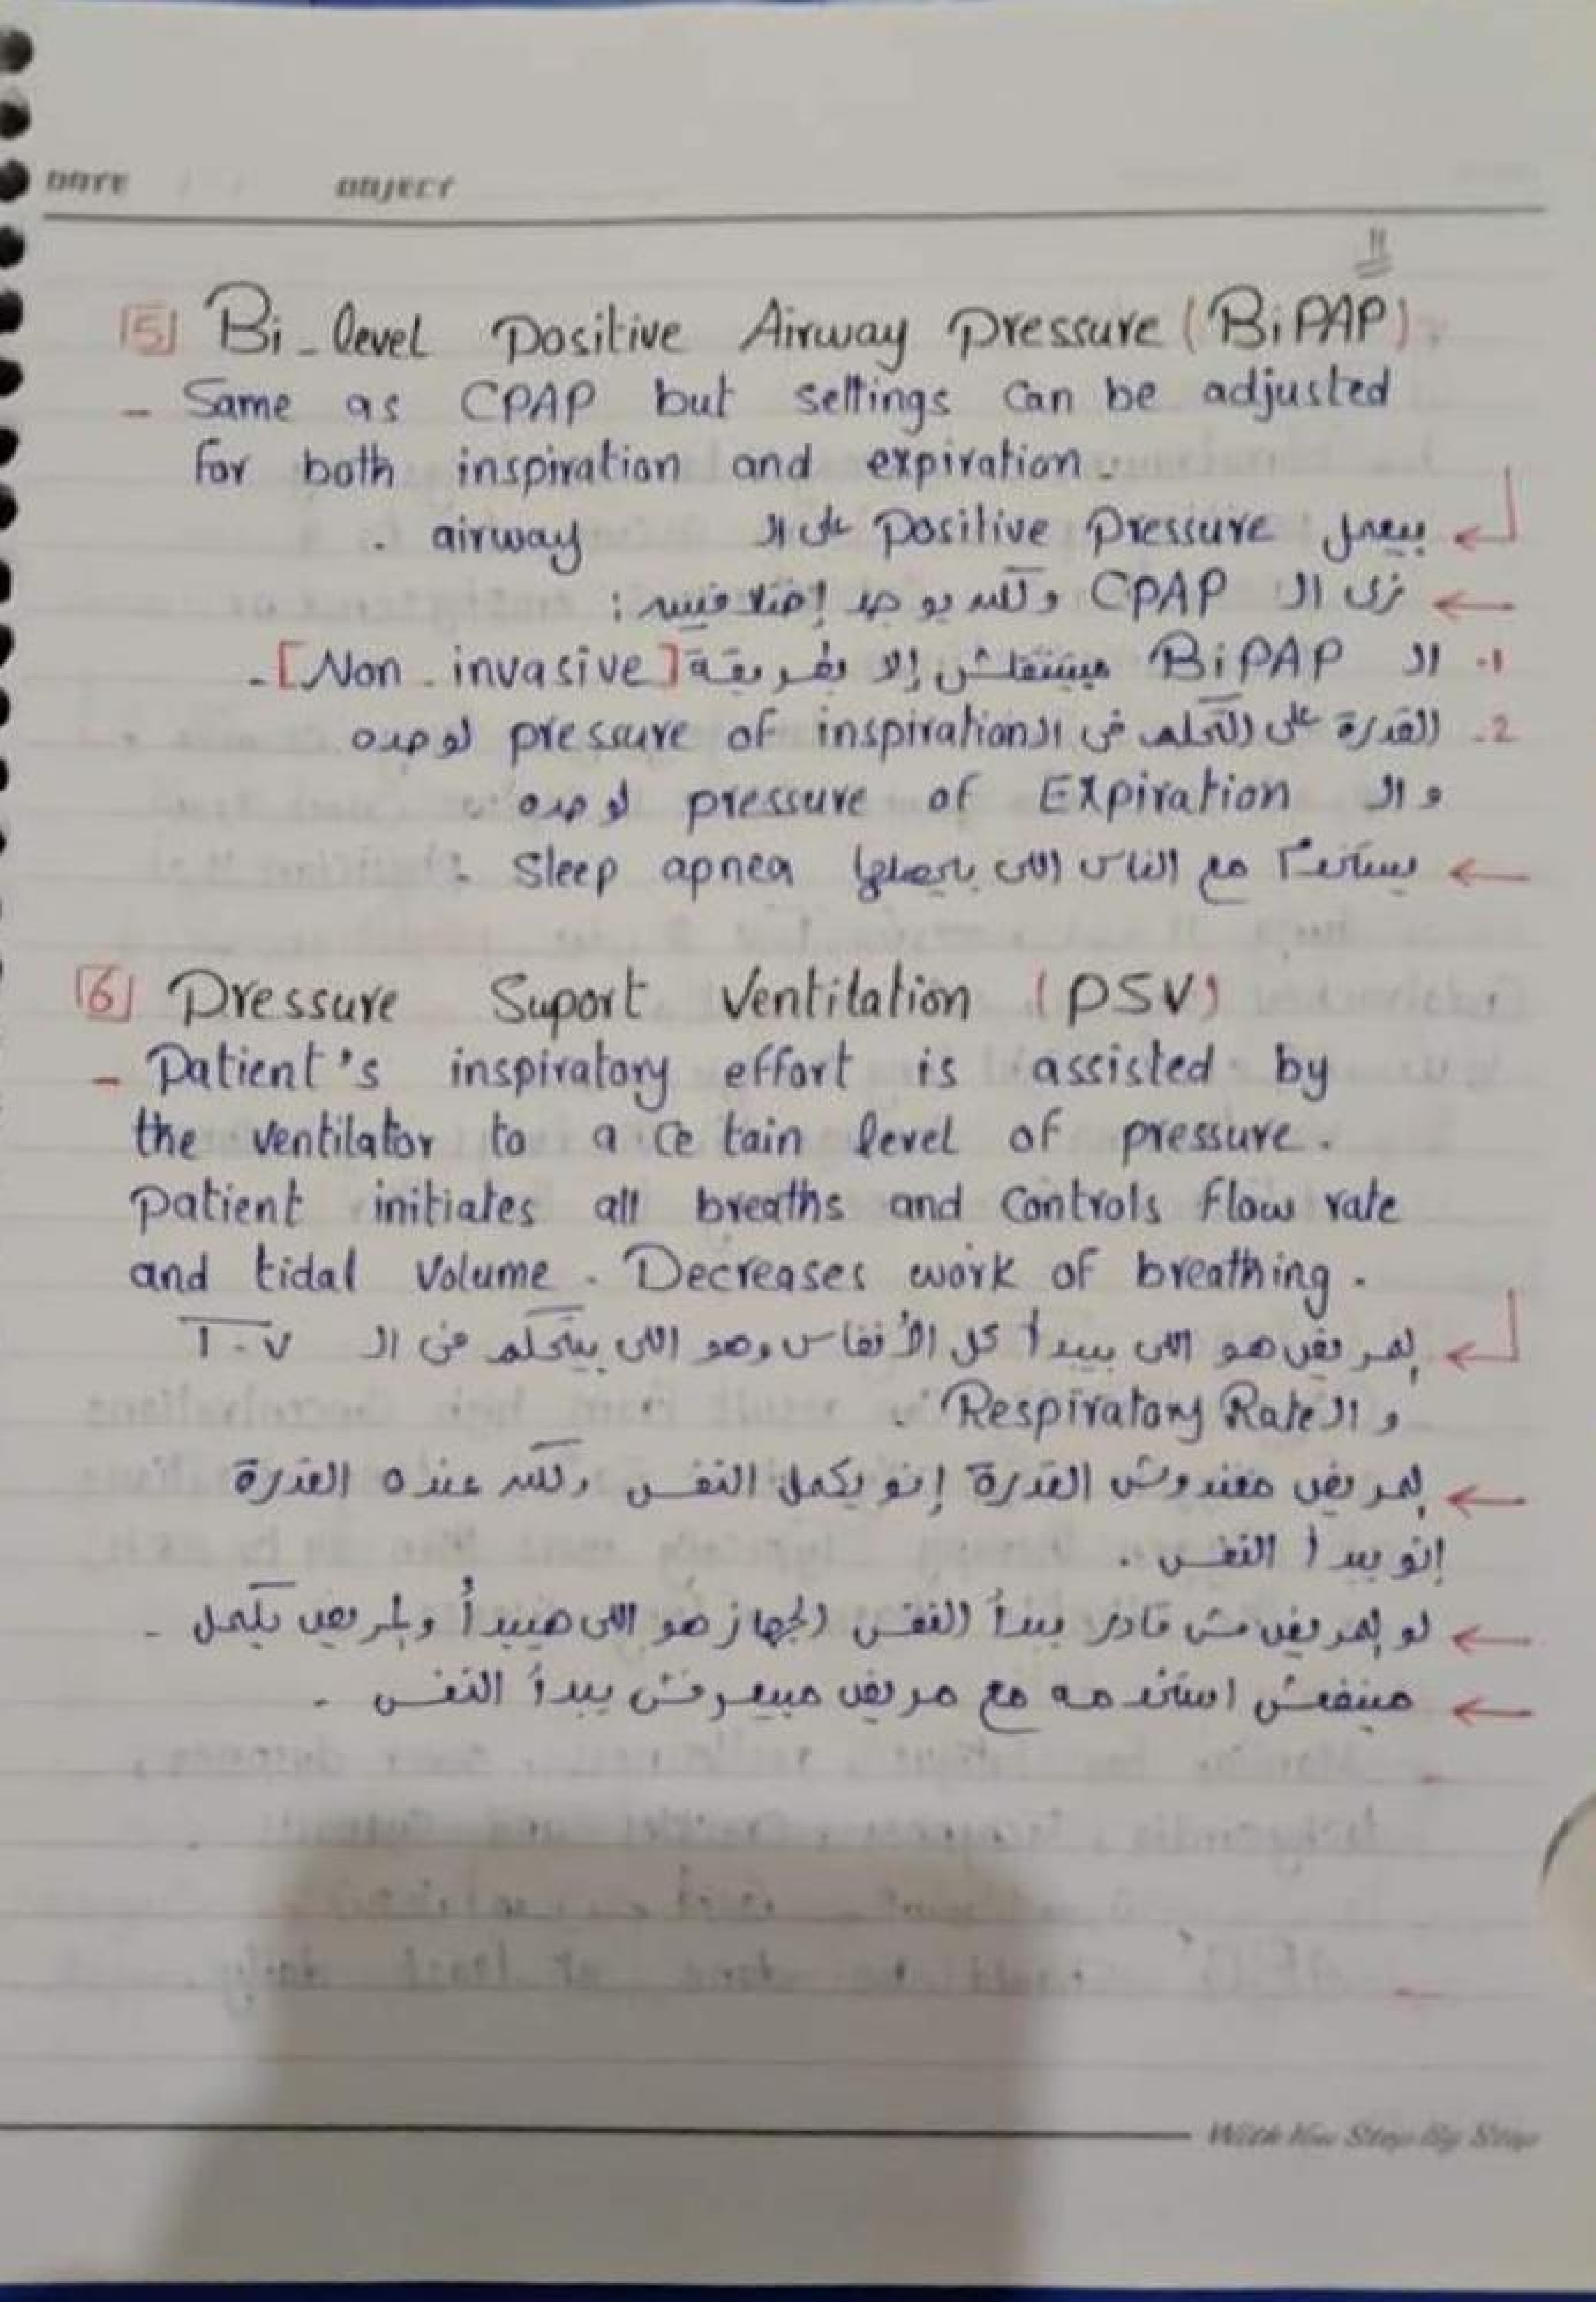 DATE / / OBJECT
11
[5] Bi-level Positive Airway Pressure (BiPAP)
- Same as CPAP but settings can be adjusted
for both inspiration and expiration.
بيعمل Positive Pressure على الـ airway .
زى الـ CPAP ولكن يوجد إختلافيين :
1. الـ BiPAP مبيشتغلش إلا بطريقة [Non-invasive].
2. القدرة على التحكم فى الـ pressure of inspiration لوحده
و الـ pressure of Expiration لوحده .
يستخدم مع الناس اللى بايحصلها Sleep apnea .
[6] Pressure Suport Ventilation (PSV)
- Patient's inspiratory effort is assisted by
the ventilator to a ce tain level of pressure.
Patient initiates all breaths and controls flow rate
and tidal volume. Decreases work of breathing.
المريض هو اللى بيبدأ كل الأنفاس وهو اللى بيتحكم فى الـ T.V
و الـ Respiratory Rate .
المريض معندوش القدرة إنو يكمل النفس ولكن عنده القدرة
إنو يبدأ النفس .
لو المريض مش قادر يبدأ النفس الجهاز هو اللى هيبدأ والمريض يكمل .
مينفعش استخدمه مع مريض مبيعرفش يبدأ النفس .
With You Step By Step